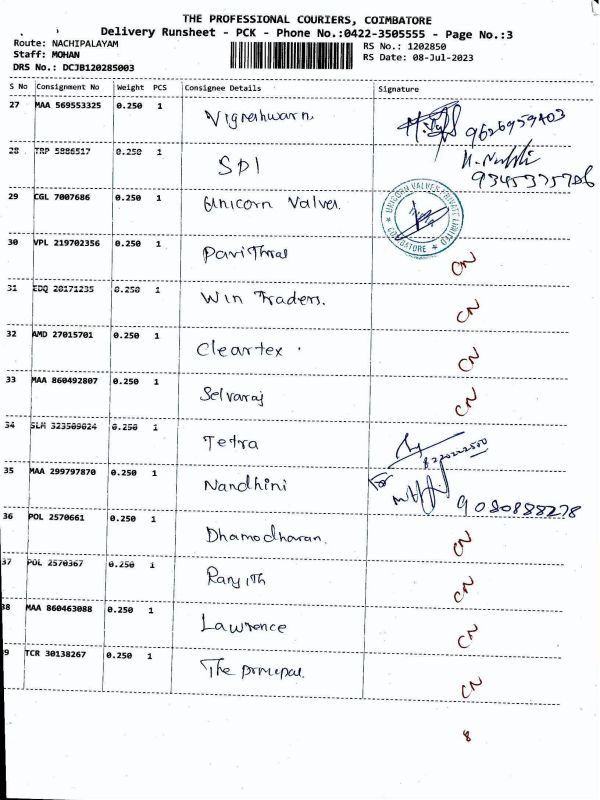 THE PROFESSIONAL COURIERS, COIMBATORE
Delivery Runsheet - PCK - Phone No.:0422-3505555 - Page No.:3
Route: NACHIPALAYAM RS No.: 1202850
Staff: MOHAN RS Date: 08-Jul-2023
DRS No.: DCJB120285003
S No Consignment No Weight PCS Consignee Details Signature
27 MAA 569553325 0.250 1 Vigneshwarn. 9626959403
28 TRP 5886517 0.250 1 SPI
29 CGL 7007686 0.250 1 Unicorn Valves. UNICORN VALVES PRIVATE LIMITED COIMBATORE
30 VPL 219702356 0.250 1 Pavithral CN
31 EDQ 20171235 0.250 1 Win Traders. CN
32 AMD 27015701 0.250 1 Cleartex . CN
33 MAA 860492807 0.250 1 Selvaraj CN
34 SLM 323509024 0.250 1 Tetra
35 MAA 299797870 0.250 1 Nandhini For 9080888278
36 POL 2570661 0.250 1 Dhamodharan. CN
37 POL 2570367 0.250 1 Ranjith CN
38 MAA 860463088 0.250 1 Lawrence CN
9 TCR 30138267 0.250 1 The principal. CN
8